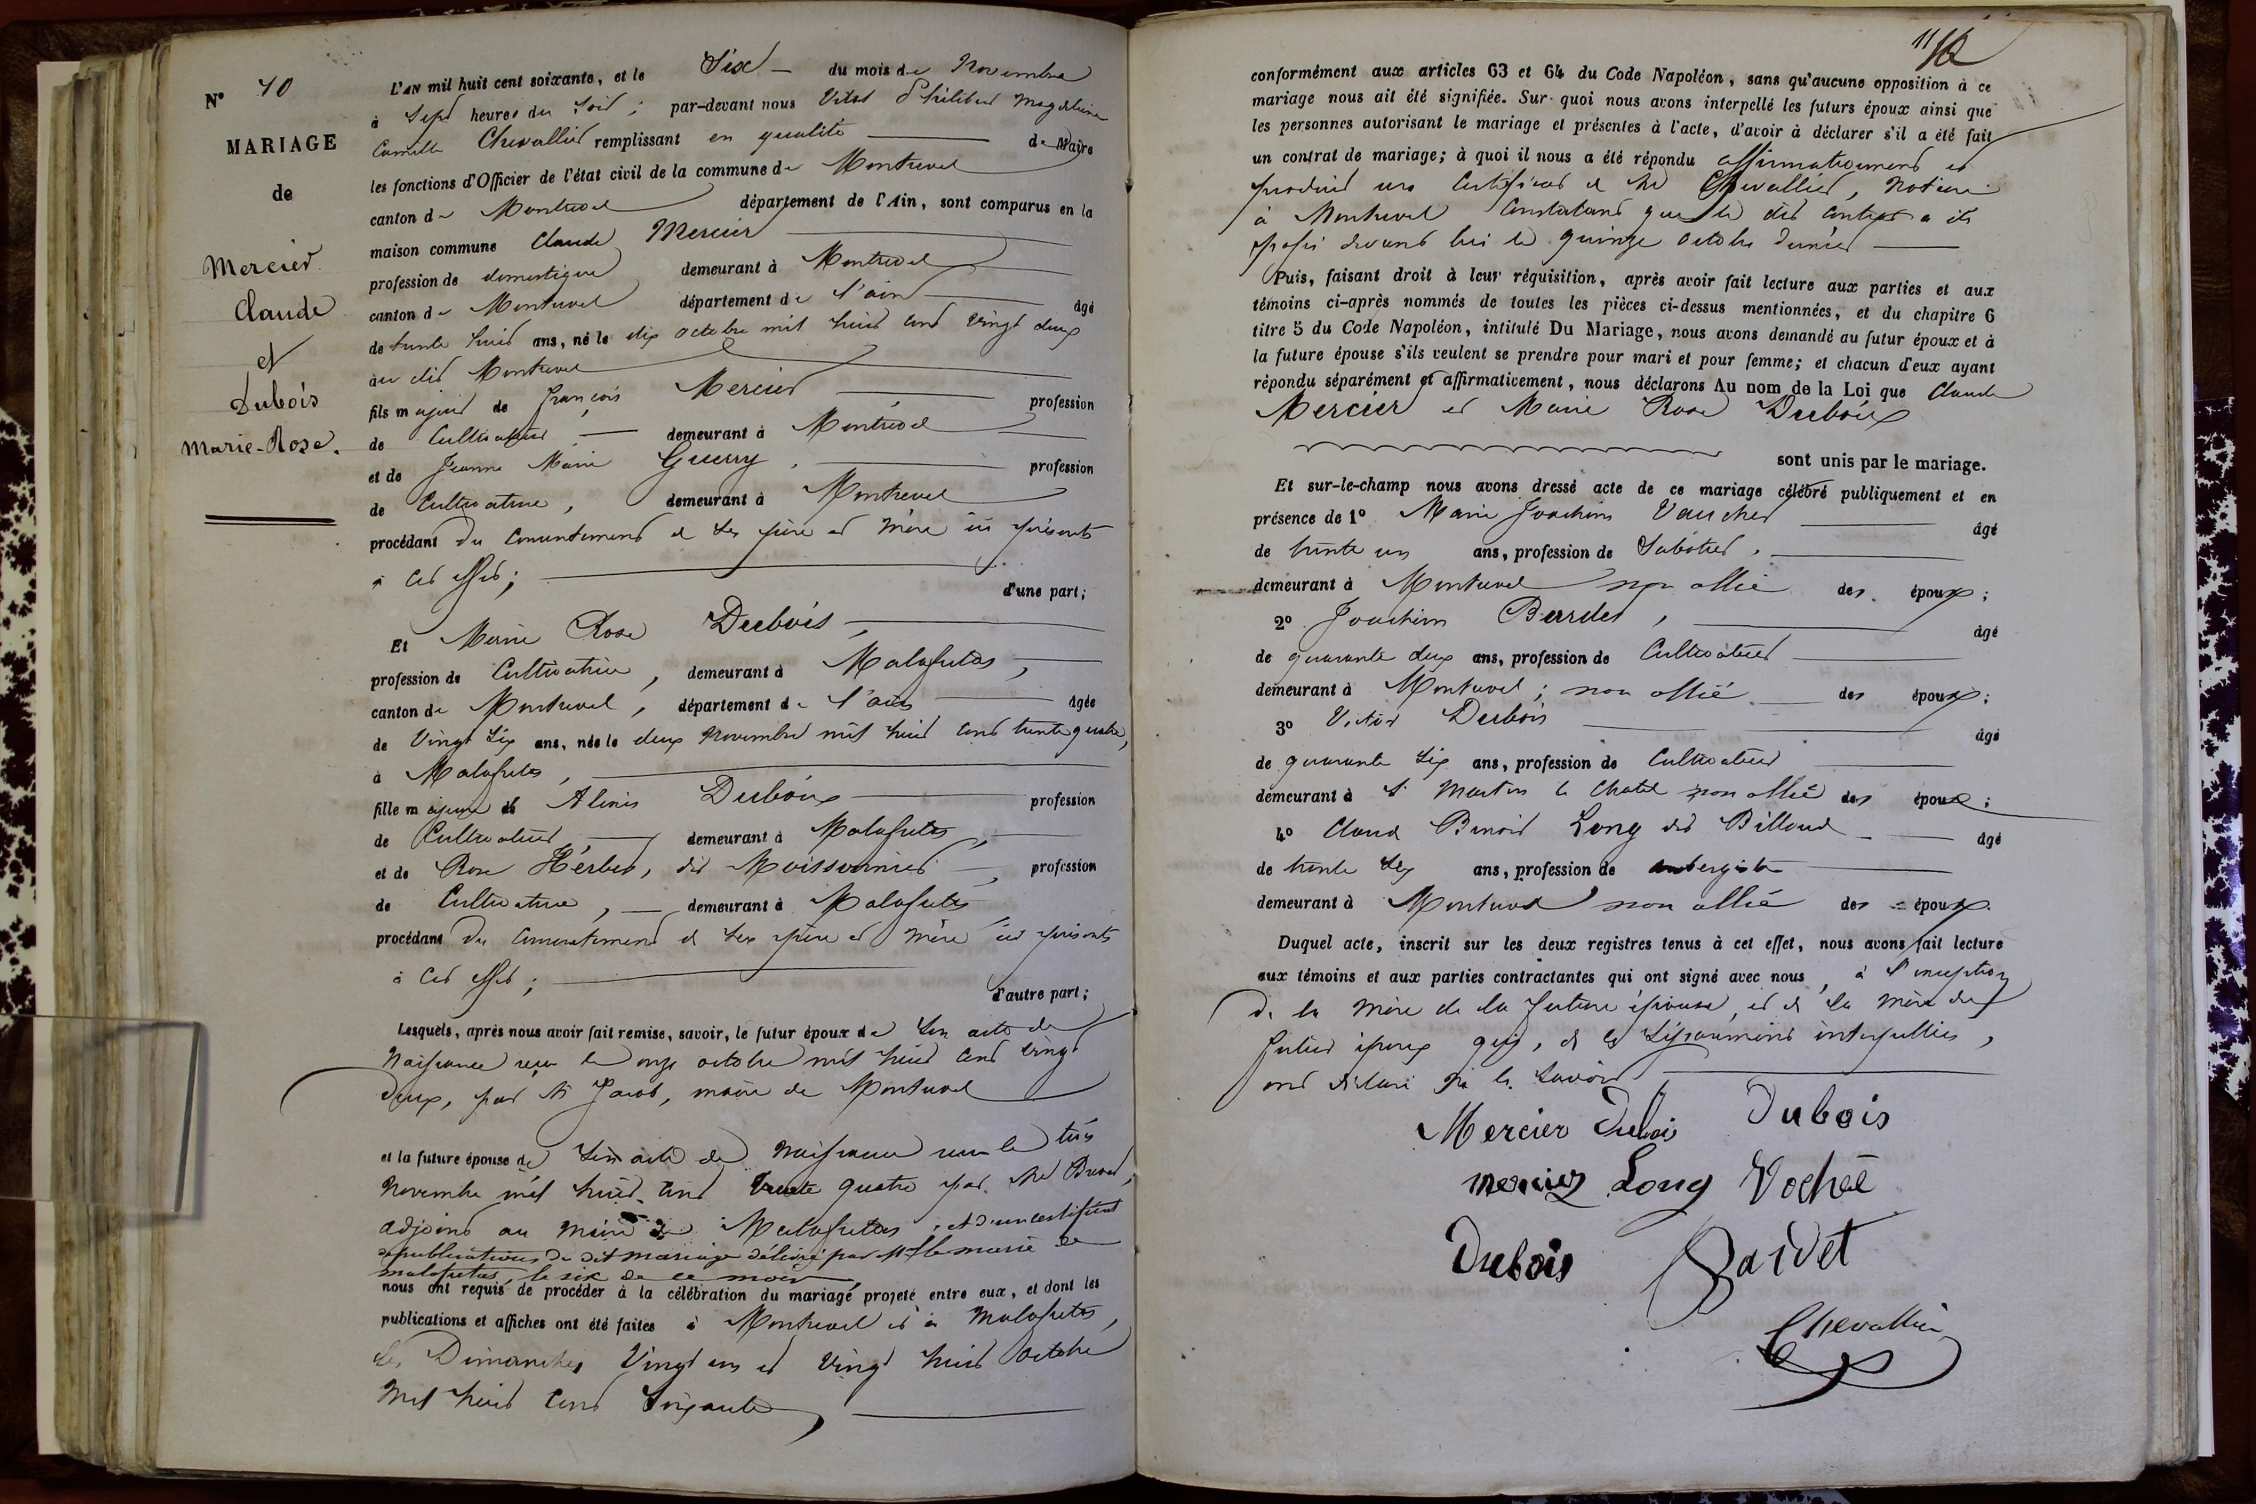 N° 10
MARIAGE
de
Mercier
Claude
et
Dubois
Marie-Rose.
L'AN mil huit cent soixante, et le Six du mois de Novembre
à Sept heures du Soir; par-devant nous Vital Philibert Magdeleine
Camille Chevallier remplissant en qualité de Maire
les fonctions d'Officier de l'état civil de la commune de Montrevel
canton de Montrevel département de l'Ain, sont comparus en la
maison commune Claude Mercier
profession de domestique demeurant à Montrevel
canton de Montrevel département de l'ain âgé
de trente huit ans, né le dix octobre mil huit cent vingt deux
au dit Montrevel
fils majeur de François Mercier profession
de Cultivateur demeurant à Montrevel
et de Jeanne Marie Guerry profession
de Cultivatrice, demeurant à Montrevel
procédant du Consentement de ses père et mère ici présents
à cet effet; d'une part;
Et Marie Rose Dubois,
profession de Cultivatrice, demeurant à Malafretas,
canton de Montrevel, département de l'ain âgée
de Vingt Six ans, née le deux Novembre mil huit cent trente quatre,
à Malafretas,
fille majeure de Alexis Dubois profession
de Cultivateur, demeurant à Malafretas,
et de Rose Herbet, dit Moissonnier, profession
de Cultivatrice, demeurant à Malafretas
procédant du Consentement de ses père et mère ici présents
à cet effet; d'autre part;
Lesquels, après nous avoir fait remise, savoir, le futur époux de son acte de
Naissance reçu le onze octobre mil huit cent vingt
deux, par Mr Jacob, maire de Montrevel
et la future épouse de son acte de Naissance reçu le trois
Novembre mil huit cent trente quatre par Mr
adjoint au Maire de Malafretas; et d'un certificat
de publications du dit mariage délivré par Mr le maire de
malafretas, le six de ce mois,
nous ont requis de procéder à la célébration du mariage projeté entre eux, et dont les
publications et affiches ont été faites à Montrevel et à Malafretas,
les Dimanches Vingt un et vingt huit octobre
mil huit cent soixante,
conformément aux articles 63 et 64 du Code Napoléon, sans qu'aucune opposition à ce
mariage nous ait été signifiée. Sur quoi nous avons interpellé les futurs époux ainsi que
les personnes autorisant le mariage et présentes à l'acte, d'avoir à déclarer s'il a été fait
un contrat de mariage; à quoi il nous a été répondu affirmativement et
produit un Certificat de Me Chevallier, Notaire
à Montrevel Constatant que le dit contrat a été
passé devant lui le quinze octobre dernier
Puis, faisant droit à leur réquisition, après avoir fait lecture aux parties et aux
témoins ci-après nommés de toutes les pièces ci-dessus mentionnées, et du chapitre 6
titre 5 du Code Napoléon, intitulé Du Mariage, nous avons demandé au futur époux et à
la future épouse s'ils veulent se prendre pour mari et pour femme; et chacun d'eux ayant
répondu séparément et affirmativement, nous déclarons Au nom de la Loi que Claude
Mercier et Marie Rose Dubois
sont unis par le mariage.
Et sur-le-champ nous avons dressé acte de ce mariage célébré publiquement et en
présence de 1° Marie Joachim Vaucher âgé
de trente un ans, profession de Sabotier,
demeurant à Montrevel non allié des époux;
2° Joachim Bardet, âgé
de quarante deux ans, profession de Cultivateur
demeurant à Montrevel; non allié des époux;
3° Victor Dubois âgé
de quarante six ans, profession de Cultivateur
demeurant à St Martin le Chatel non allié des époux;
4° Claude Benoit Long dit Billoud âgé
de trente six ans, profession de aubergiste
demeurant à Montrevel non allié des époux.
Duquel acte, inscrit sur les deux registres tenus à cet effet, nous avons fait lecture
aux témoins et aux parties contractantes qui ont signé avec nous, à l'exception
de la mère de la future épouse, et de la mère du
futur époux qui, de ce séparément interpellées,
ont déclaré ne le savoir
Mercier Dubois Dubois
mercier Long Vochée
Dubois Bardet
Chevallier